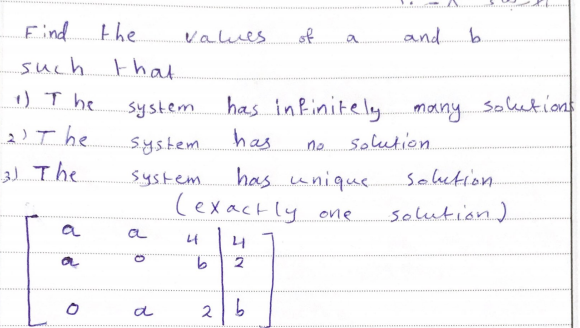 Find the values of a and b
such that
1) The system has infinitely many solutions
2) The system has no solution
3) The system has unique solution
(exactly one solution)
a a 4 | 4
a 0 b | 2
0 a 2 | b